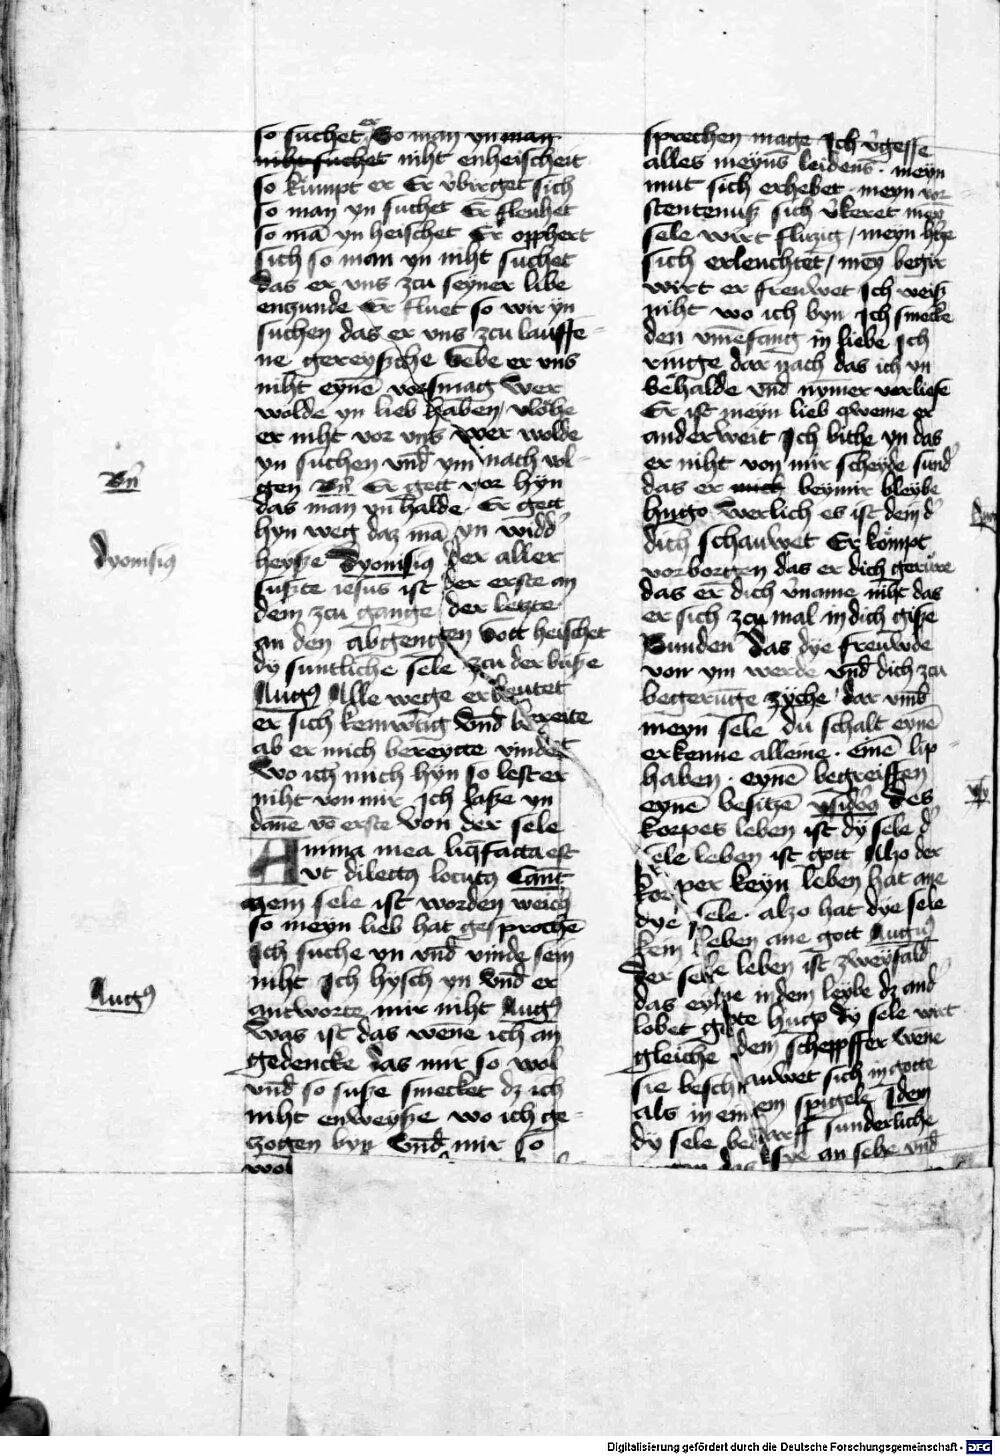 so suchet er So man yn man
niht suchet niht enheischeit
so kumpt er Er v̄birget sich
so man yn suchet Er fleuhet
so mā yn heischet Er opphert
sich so man yn niht suchet
das er vns zcu seyner libe
enzunde Er fluet so wir yn
suchen das er vns zcu lauffe-
ne gereyszche Gebe er vns
niht eynē vorsmag Wer
wolde yn lieb haben / vlöhe
er niht vor vns wer wolde
yn suchen vnd ym nach vol-
gen Bn̄ Er gett vor hyn
das man yn halde · Er gett
hyn weg daz mā yn widd'
heysze Dyonisiꝰ Der aller
suszte iesus ist der erste an
dem zcu gange der letzte
an den abgengen Gott heischet
dy suntliche sele zcu der busze
Augꝰ Alle wege erbeutet
er sich kenwtig Vnd bereite
ab er mich bereytte vindet
Wo ich mich hyn so lest er
niht von mir Ich lasze yn
danē vō erste Von der sele
Anima mea liqfacta est
vt dilectꝰ locutꝰ Cant
mem sele ist worden weich
so meyn lieb hat gesprochē
Ich suche yn vnd vinde sein
niht Ich hysch yn Vnd er
antworte mir niht Augꝰ
Was ist das wēne ich an
gedencke das mir so wol
vnd so susze smecket dz ich
niht enweysze wo ich ge-
zogen byn Vnd mir so
wol
Bn̄
Dyonisiꝰ
Augꝰ
sprechen mage Ich v̄gesse
alles meyns leidens · meyn
mut sich erhebet · meyn vor
stentenusz sich v̄keret mey
sele wirt fluzig / meyn htze
sich erleuchtet / mey begir
wirt er freuwet Ich weisz
niht wo ich byn Ich smecke
den vmefang in liebe Ich
ringe dar nach das ich yn
behalde vnd nymer verliese
Er ist meyn lieb qweme er
anderweit Ich bithe yn das
er niht von mir scheyde sund'
das er mich beymir bleybe
Hugo Werlich es ist dem d'
dich schauwet Er kompt
vorborgen das er dich gerüre
das er dich v̄name niht das
er sich zcu mal in dich gisze
Bunden das dye freuwde
von ym werde vnd dich zcu
begerunge zyehe / dar vmb
meyn sele du schalt eynē
erkenne alleine · einē lip-
haben · eynē begreiffen
eynē besitzē ysid'ꝰ des
korpes leben ist dy sele d'
sele leben ist gott Also der
korper keyn leben hat ane
dye sele · also hat dye sele
kem leben ane gott Augꝰ
Der sele leben ist zweyfald
das eyne in dem leybe dz and'
lobet gotte Hugo dy sele wirt
gleiche dem scheppffer wēne
sie beschauwet sich in gotte
als in einem spigele Idem
dy sele bedarff sunderliche
sye an sehe vnd